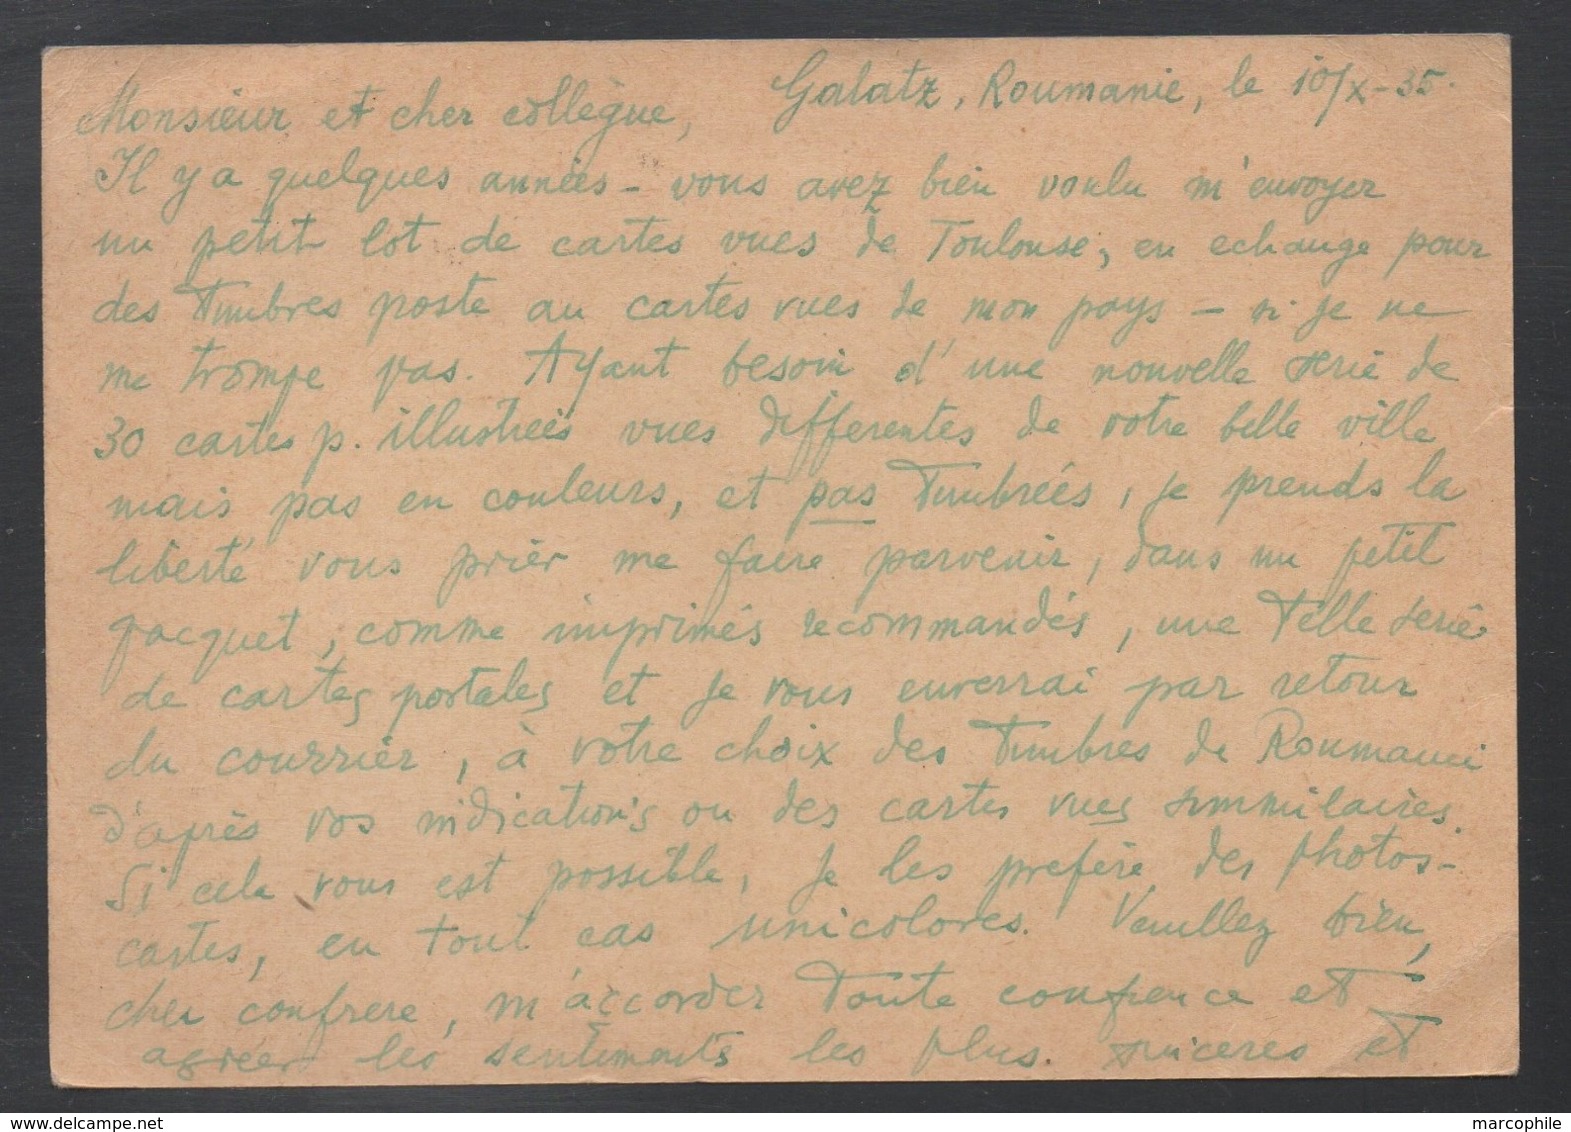 Galatz, Roumanie, le 10/X-35.
Monsieur et cher collègue,
Il y a quelques années - vous avez bien voulu m'envoyer
un petit lot de cartes vues de Toulouse, en echange pour
des timbres poste au cartes vues de mon pays - si je ne
me trompe pas. Ayant besoin d'une nouvelle serie de
30 cartes p. illustrées vues differentes de votre belle ville
mais pas en couleurs, et pas timbrées, je prends la
liberté vous prier me faire parvenir, dans un petit
pacquet, comme imprimés recommandés, une telle serie
de cartes postales et je vous enverrai par retour
du courrier, à votre choix des timbres de Roumanie
d'après vos indications ou des cartes vues simmilaires.
Si cela vous est possible, je les prefère des photos-
cartes, en tout cas unicolores. Veuillez bien,
cher confrere, m'accorder toute confience et
agréer les sentiments les plus sinceres et
www.delcampe.net
marcophile